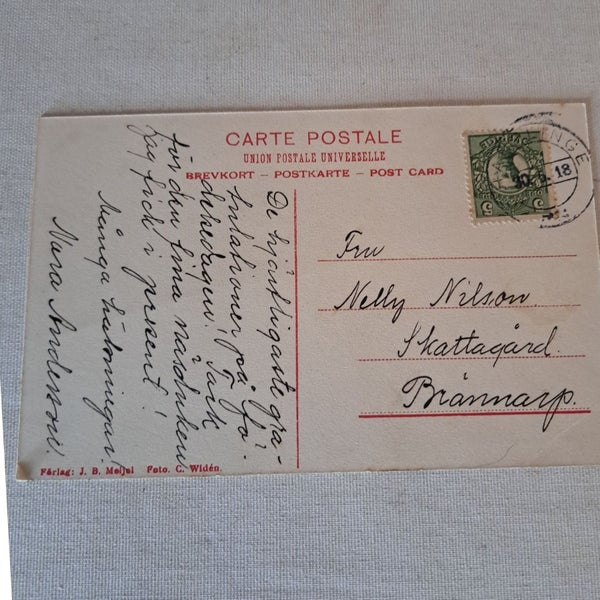 CARTE POSTALE
UNION POSTALE UNIVERSELLE
BREVKORT – POSTKARTE – POST CARD
De hjärtligaste gra-
tulationer på fö-
delsedagen! Tack
för den fina näsduken
jag fick i present!
Många hälsningar.
Andersson.
Fru
Nelly Nilson.
Skattagård
Brännarp.
Förlag: J. B. Meijel Foto. C. Widén.
5 5
INGE
18